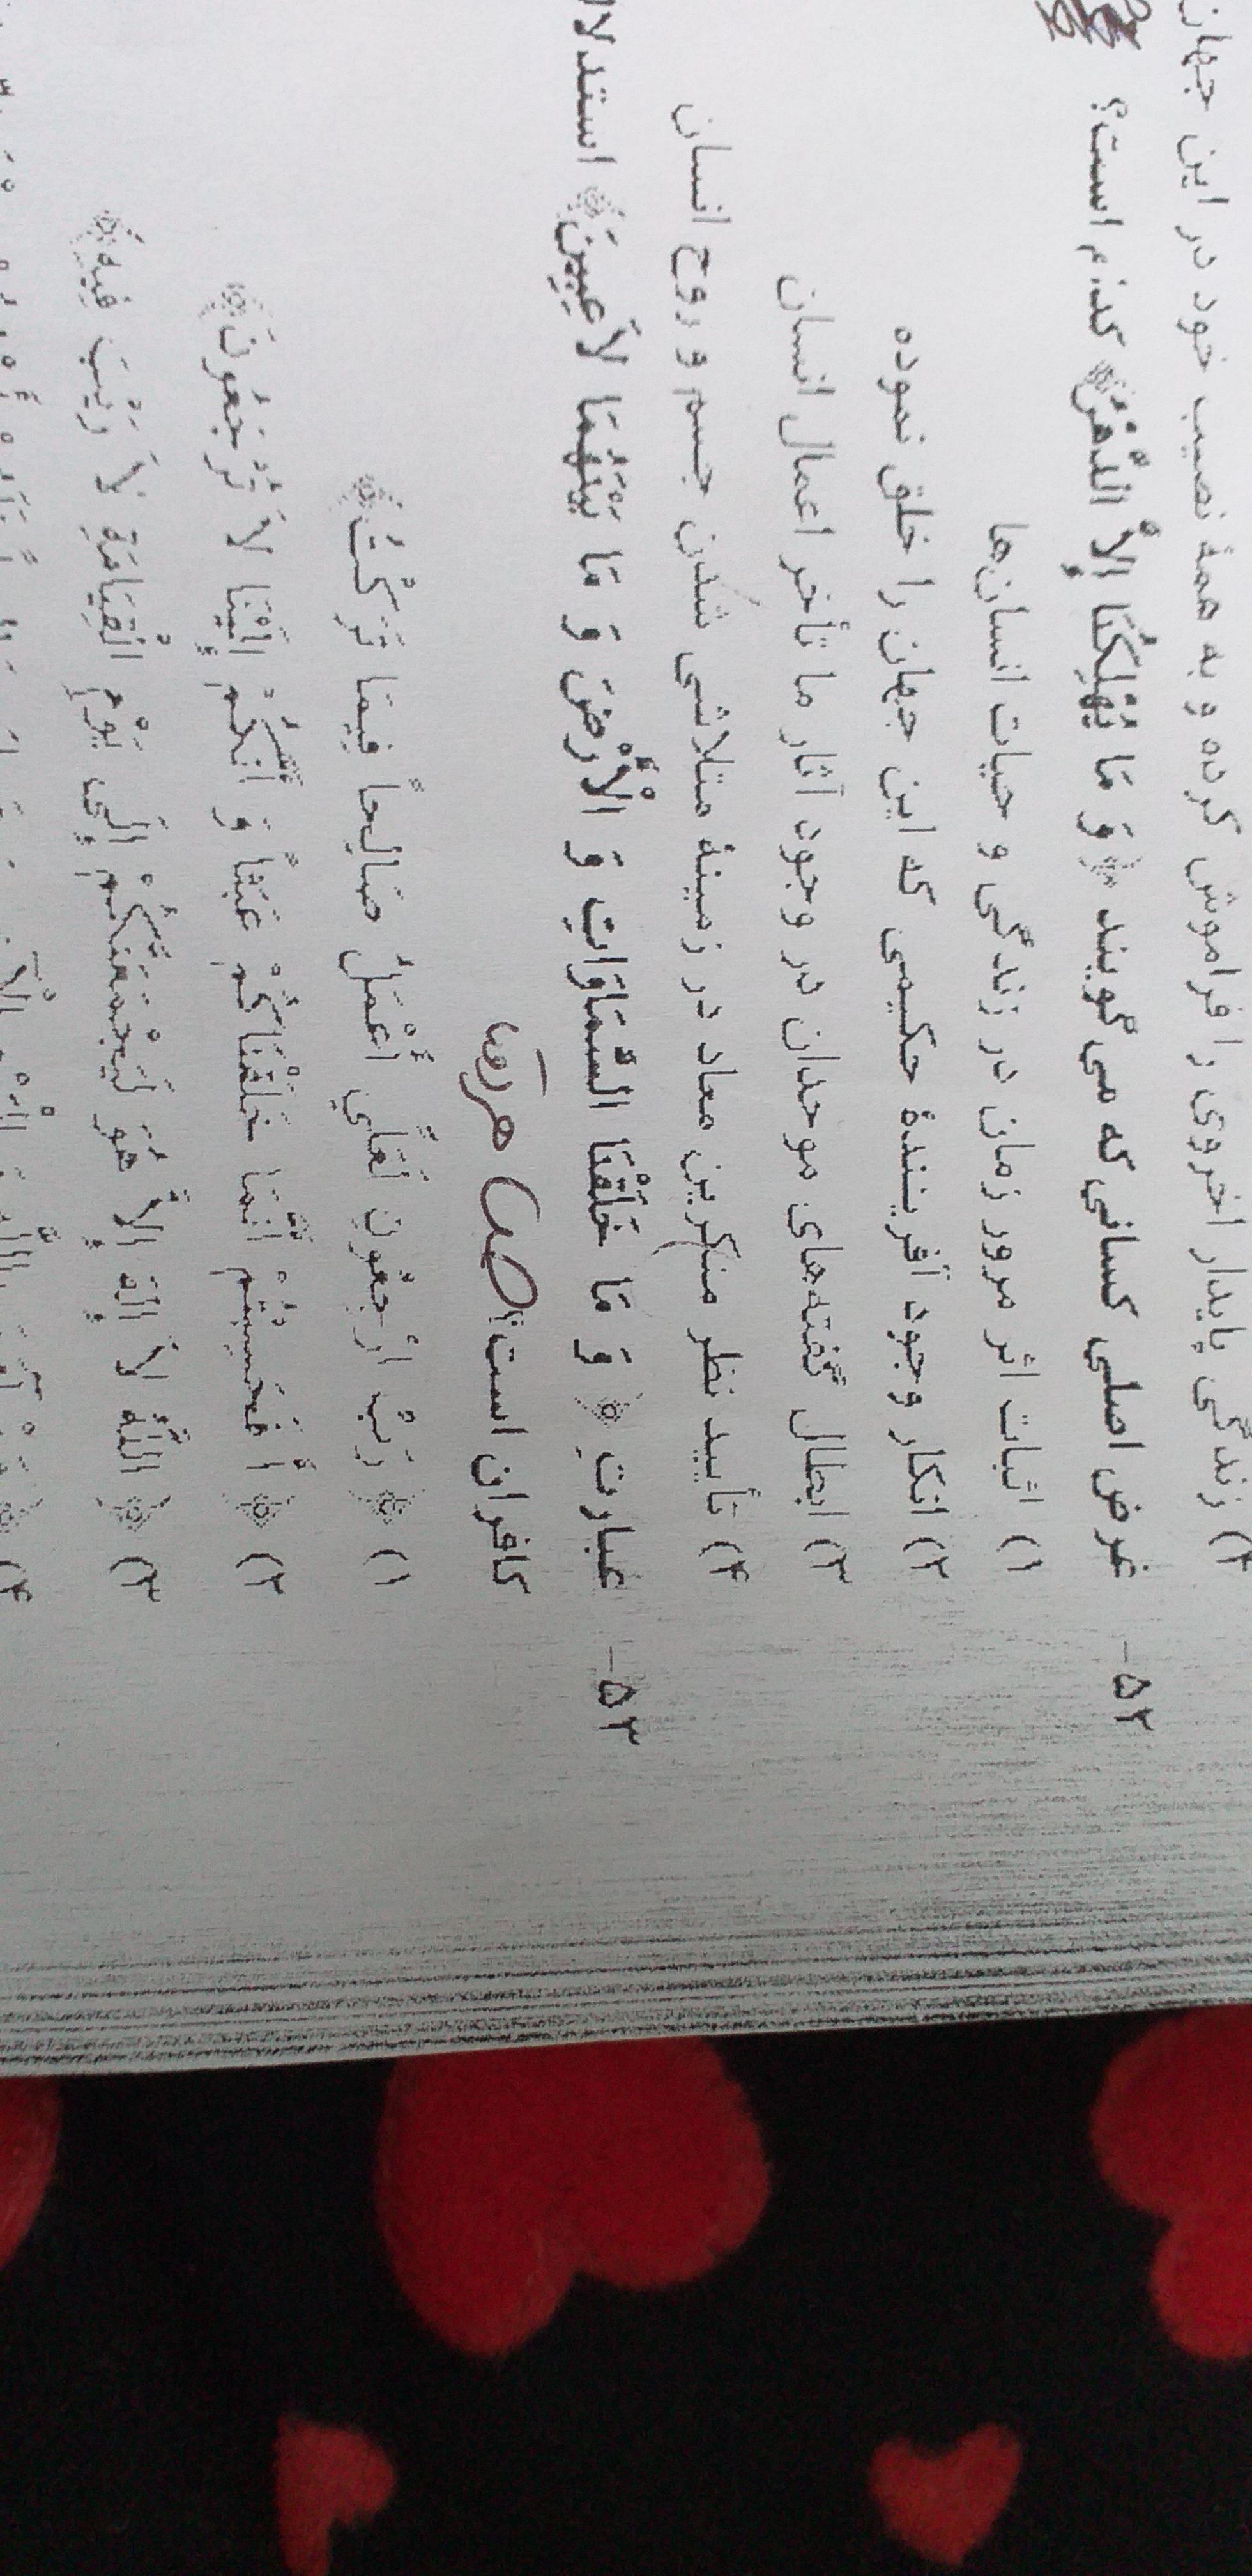 ۴) زندگی پایدار اخروی را فراموش کرده و به همهٔ نصیب خود در این جهان
۵۲- غرض اصلی کسانی که می‌گویند «وَ مَا یُهْلِکُنَا إِلاَّ الدَّهْرُ» کدام است؟
۱) اثبات اثر مرور زمان در زندگی و حیات انسان‌ها
۲) انکار وجود آفرینندهٔ حکیمی که این جهان را خلق نموده
۳) ابطال گفته‌های موحدان در وجود آثار ما تأخر اعمال انسان
۴) تأیید نظر منکرین معاد در زمینهٔ متلاشی شدن جسم و روح انسان
۵۳- عبارتِ «وَ مَا خَلَقْنَا السَّمَاوَاتِ وَ الْأَرْضَ وَ مَا بَیْنَهُمَا لاَعِبِینَ» استدلا
کافران است؟
۱) «رَبِّ ارْجِعُونِ لَعَلِّي أَعْمَلُ صَالِحاً فِیمَا تَرَکْتُ»
۲) «أَ فَحَسِبْتُمْ أَنَّمَا خَلَقْنَاکُمْ عَبَثاً وَ أَنَّکُمْ إِلَیْنَا لاَ تُرْجَعُونَ»
۳) «اللَّهُ لاَ إِلَهَ إِلاَّ هُوَ لَیَجْمَعَنَّکُمْ إِلَی یَوْمِ الْقِیَامَةِ لاَ رَیْبَ فِیهِ»
۴)